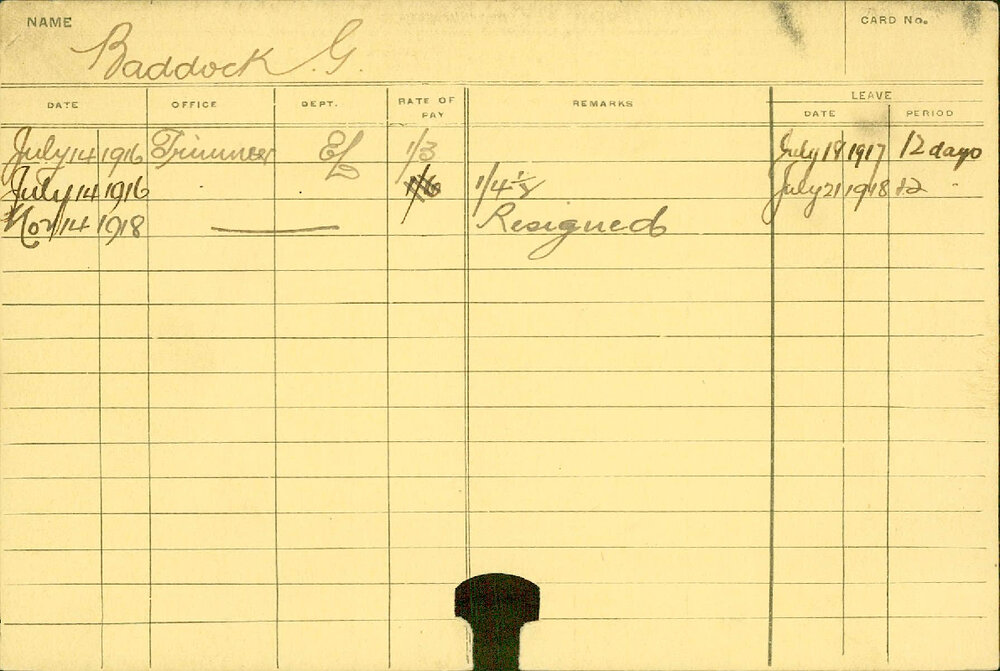 NAME
CARD No.
Baddock G.
LEAVE
DATE OFFICE DEPT. RATE OF PAY REMARKS DATE PERIOD
July 14 1916 Trimmer 1/3 July 18 1917 12 days
July 14 1916 1/4½ July 21 1918 12 "
Nov 14 1918 Resigned